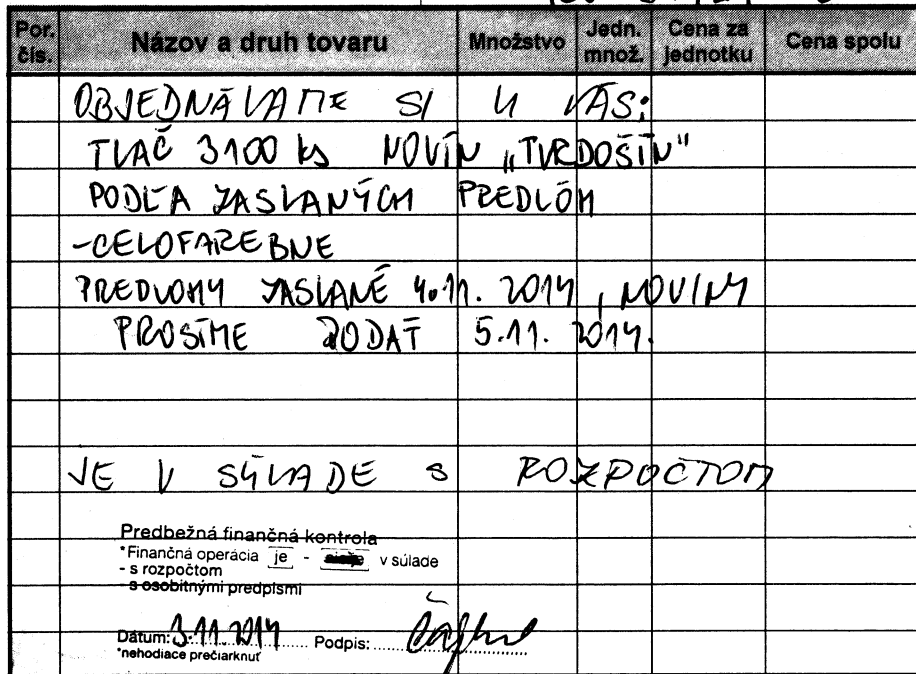 Por. čís. Názov a druh tovaru Množstvo Jedn. množ. Cena za jednotku Cena spolu
OBJEDNÁVAME SI U VÁS:
TLAČ 3100 ks NOVÍN „TVRDOŠÍN"
PODĽA ZASLANÝCH PREDLÔH
-CELOFAREBNE
PREDLOHY ZASLANÉ 4.11. 2014, NOVINY
PROSÍME DODAŤ 5.11. 2014.
JE V SÚLADE S ROZPOČTOM
Predbežná finančná kontrola
*Finančná operácia je - v súlade
- s rozpočtom
- s osobitnými predpismi
Dátum: 3.11.2014 Podpis:
*nehodiace prečiarknuť